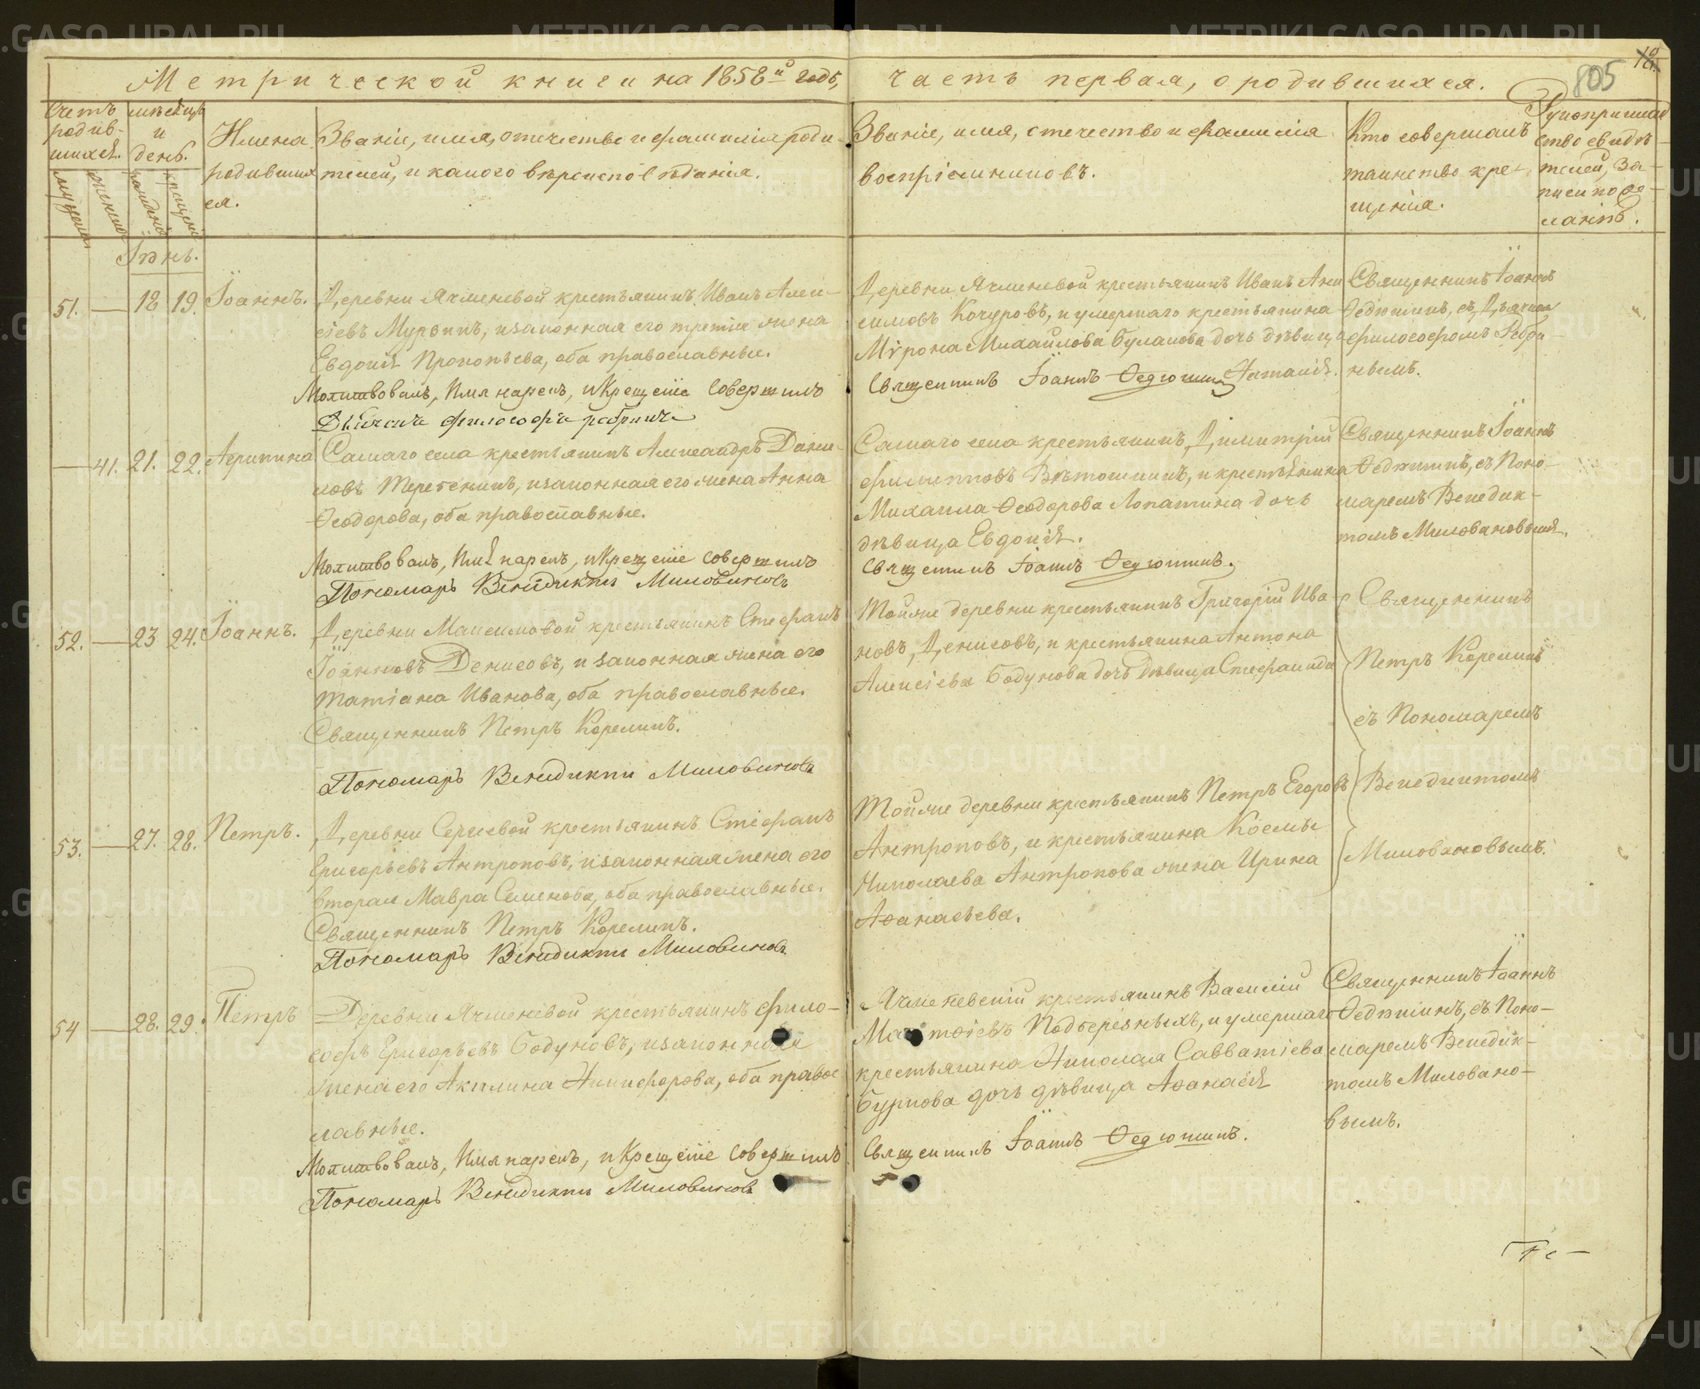 Метрической книги на 1858й годъ, часть первая, о родившихся.
805
Счетъ родив-шихся.
мѣсяцъ и день.
Имена родившихся.
Званіе, имя, отчество и фамилія роди-
телей, и какого вѣроисповѣданія.
Званіе, имя, отчество и фамилія
воспріемниковъ.
Кто совершалъ
таинство кре-
щенія.
Рукоприклад
ство свидѣ-
телей за-
писи по же-
ланію.
Іюнь.
51. — 18 19. Іоаннъ.
Деревни Ячменевой крестьянинъ Иванъ Алек-
сіевъ, и законная его третія жена
Евдокія Прокопьева, оба православные.
Молитвовалъ, Имя нарекъ, и Крещеніе Совершилъ
Деревни Ячменевой крестьянинъ Иванъ
симовъ Кочуровъ, и умершаго крестьянина
Мирона Михайлова Булашова дочь дѣвица
Священникъ Іоаннъ Ѳедюшинъ
Священникъ Іоаннъ
Ѳедюшинъ, съ Дьячкомъ
философомъ Ребри-
невымъ.
— 41. 21. 22. Агрипина
Самаго села крестьянинъ Александръ Дани-
ловъ Теребенинъ, и законная его жена Анна
Ѳеодорова, оба православные.
Молитвовалъ, Имя нарекъ, и Крещеніе Совершилъ
Пономарь Венедиктъ Миловановъ
Самаго села крестьянинъ, Димитрій
Филипповъ Вѣтошкинъ, и крестьянина
Михаила Ѳеодорова Лопатина дочь
дѣвица Евдокія.
Священникъ Іоаннъ Ѳедюшинъ.
Священникъ Іоаннъ
Ѳедюшинъ, съ Поно-
маремъ Венедик-
томъ Миловановымъ.
52. — 23 24. Іоаннъ.
Деревни Максимовой крестьянинъ Стефанъ
Іоанновъ Денисовъ, и законная жена его
Татіана Иванова, оба православные.
Священникъ Петръ Корелинъ.
Пономарь Венедиктъ Миловановъ
Тойже деревни крестьянинъ Григорій Ива
новъ, Денисовъ, и крестьянина Антона
Алексіева Бодунова дочь дѣвица Стефанида
Священникъ
Петръ Корелинъ
съ Пономаремъ
Венедиктомъ
Миловановымъ.
53. — 27. 28. Петръ.
Деревни Сергіевой крестьянинъ Стефанъ
Григорьевъ Антроповъ, и законная жена его
вторая Мавра Семенова, оба православные.
Священникъ Петръ Корелинъ.
Пономарь Венедиктъ Миловановъ
Тойже деревни крестьянинъ Петръ Егоровъ
Антроповъ, и крестьянина Космы
Николаева Антропова жена Ирина
Аѳанасьева.
54 — 28. 29. Петръ
Деревни Ячменевой крестьянинъ Фило-
софъ Григорьевъ Бодуновъ, и законная
жена его Акилина Никифорова, оба правос
лавные.
Молитвовалъ, Имя нарекъ, и Крещеніе Совершилъ
Пономарь Венедиктъ Миловановъ
Ячменевскій крестьянинъ Василій
Матѳіевъ Подберезныхъ, и умершаго
крестьянина Николая Савватіева
Буркова дочь дѣвица Аѳанасія
Священникъ Іоаннъ Ѳедюшинъ.
Священникъ Іоаннъ
Ѳедюшинъ, съ Поно-
маремъ Венедик-
томъ Миловано-
вымъ.